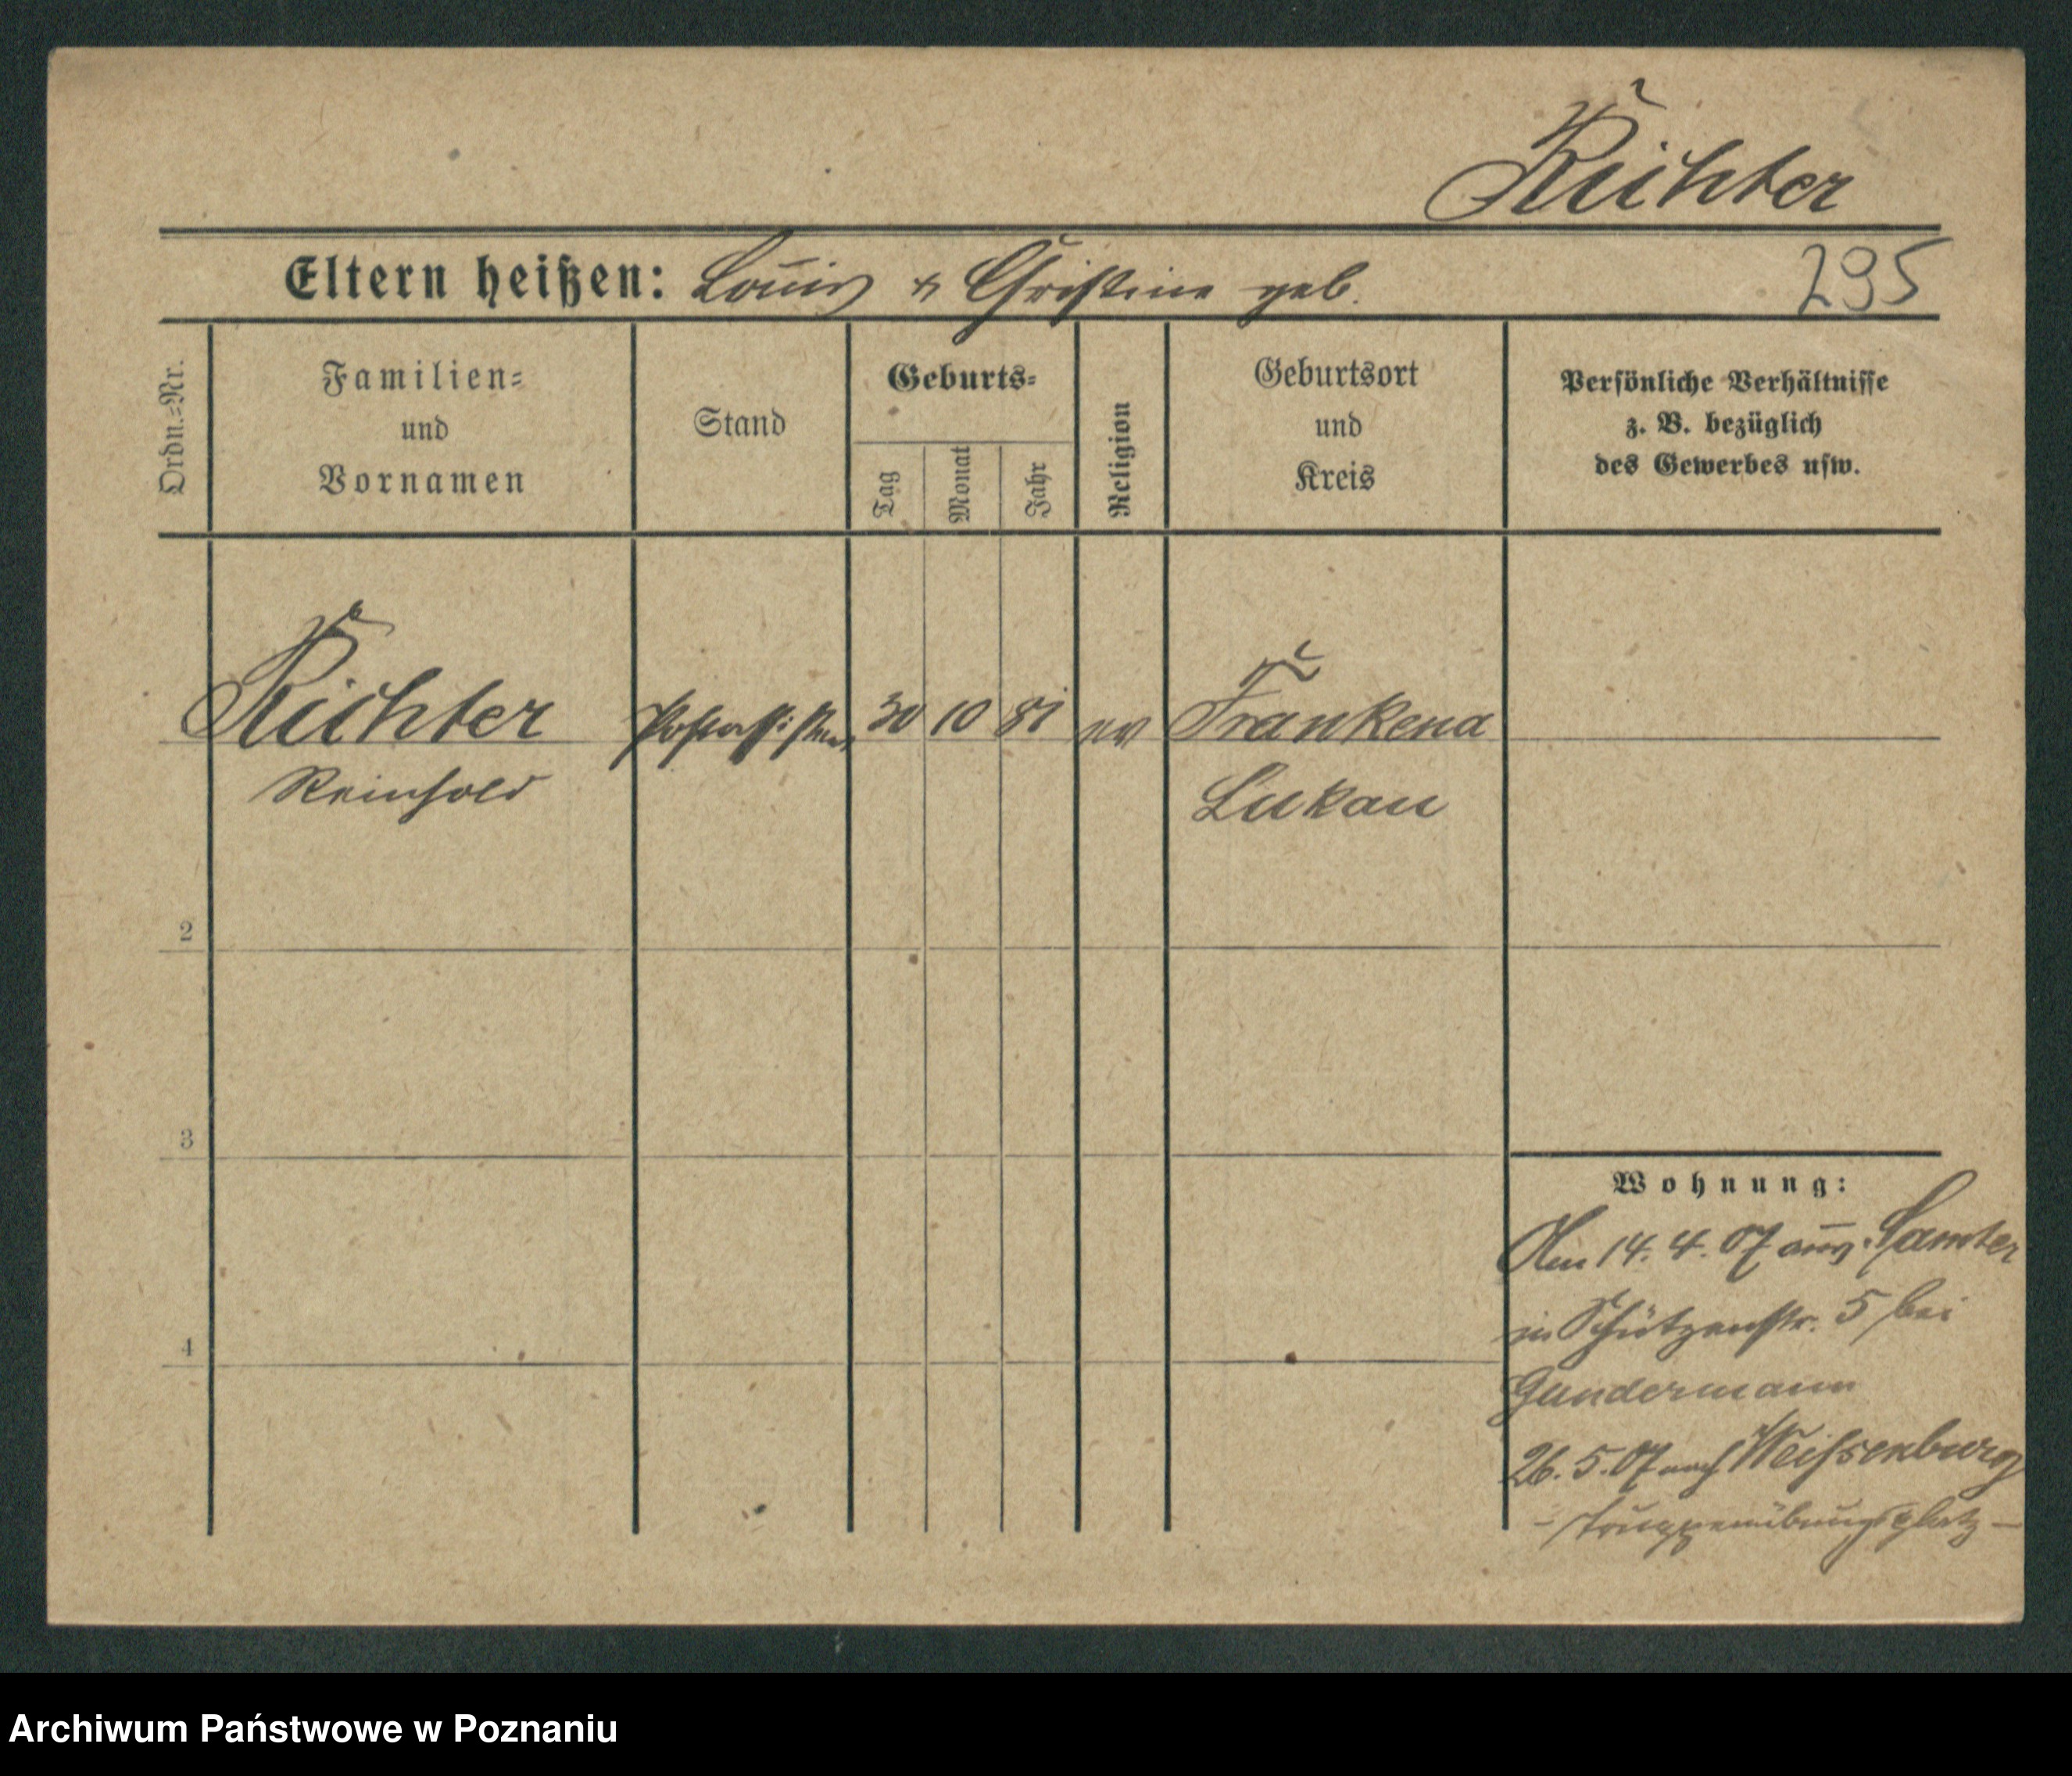 Richter
Eltern heißen: Louis & Christine geb.
295
Ordn.=Nr.
Familien=
und
Vornamen
Stand
Geburts=
Tag
Monat
Jahr
Religion
Geburtsort
und
Kreis
Persönliche Verhältnisse
z. B. bezüglich
des Gewerbes usw.
Richter Postassistent 30 10 81 ev Frankena
Reinhold Lukau
2
3
4
Wohnung:
Am 14. 4. 07 aus Samter
in Schützenstr. 5 bei
Gundermann
26. 5. 07 nach Weissenburg
- Truppenübungsplatz -
Archiwum Państwowe w Poznaniu